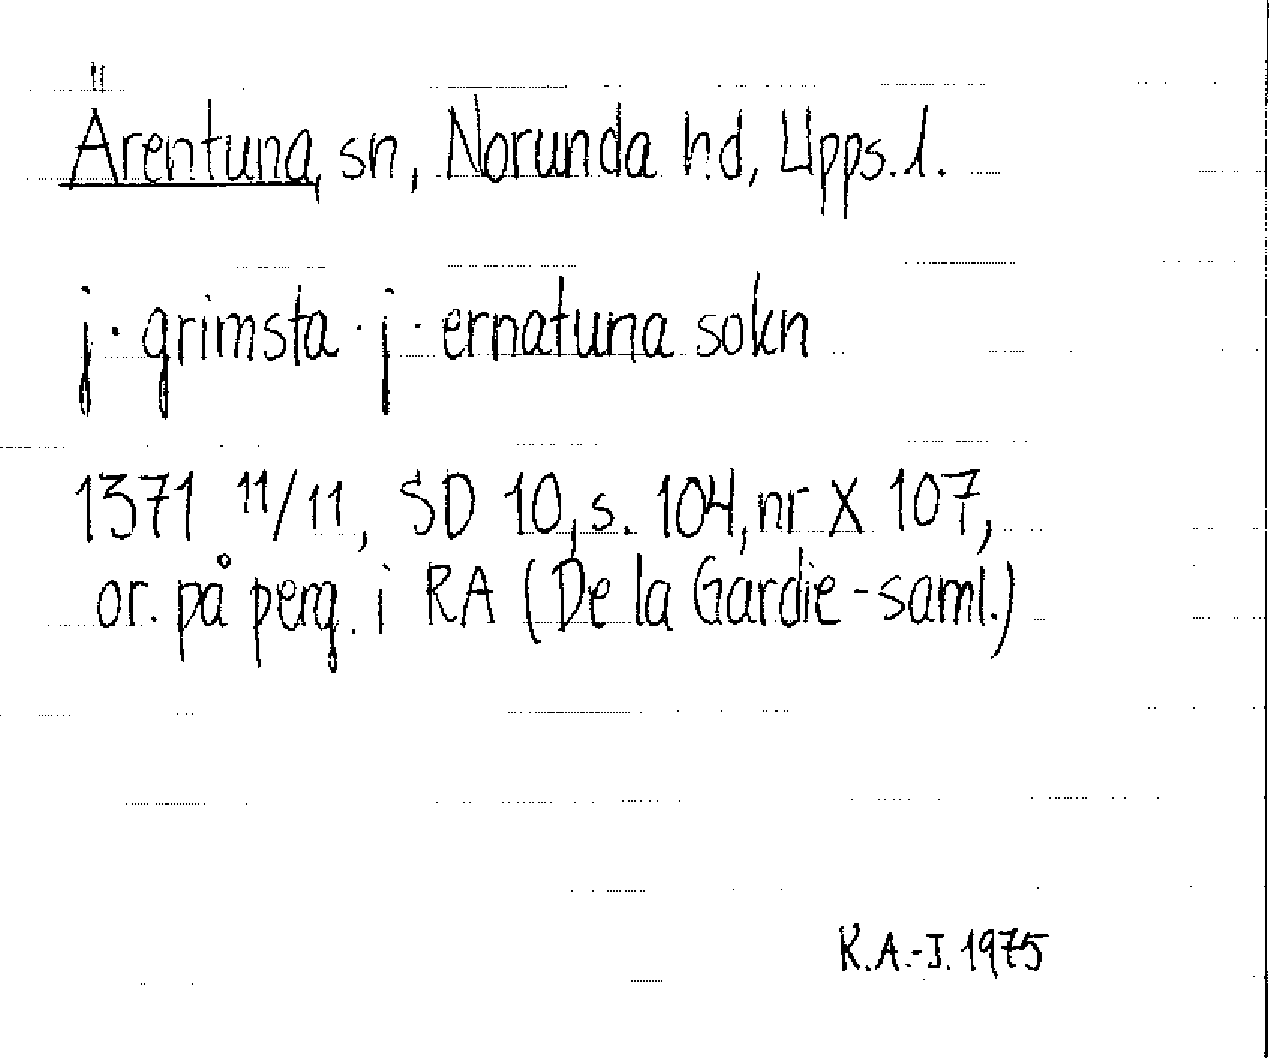 Ärentuna, sn, Norunda hd, Upps. l.
j · grimsta · j · ernatuna sokn
1371 11/11, SD 10, s. 104, nr X 107,
or. på perg. i RA (De la Gardie-saml.)
K.A.-J. 1975